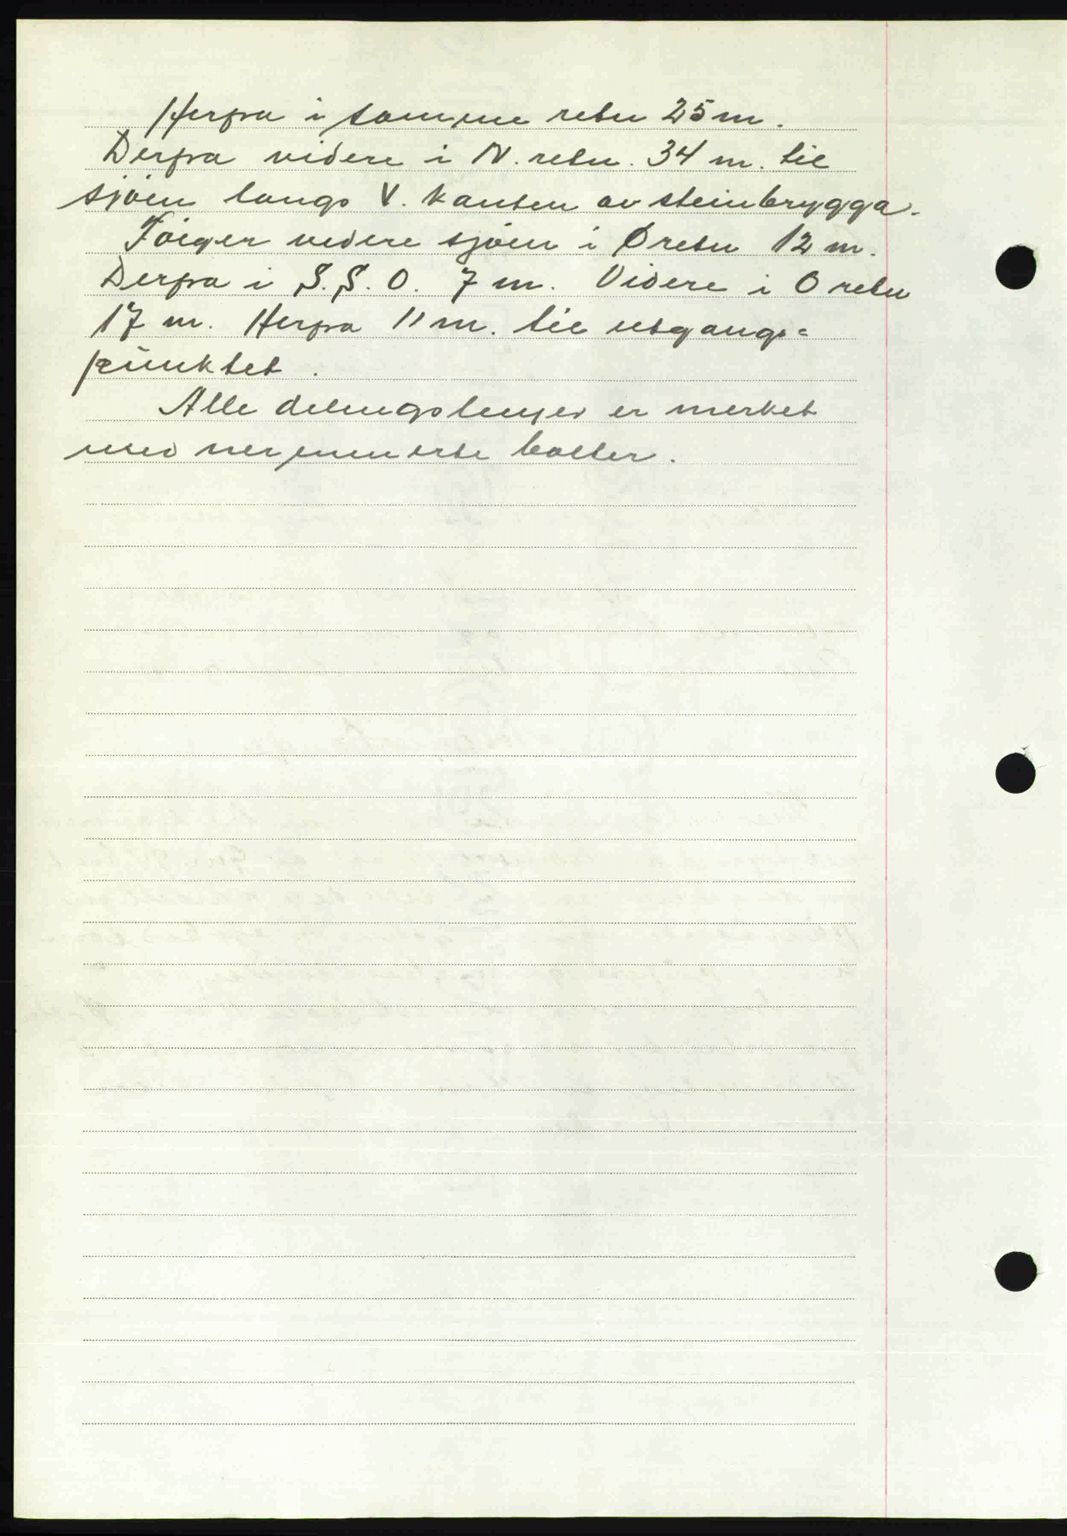 Herfra i samme retn 25 m.
Derfra videre i N. retn. 34 m. til
sjöen langs V. kanten av steinbrygga.
Fölger videre sjöen i Ø retn 12 m.
Derfra i S.S.O. 7 m. Videre i O retn
17 m. Herfra 11 m. til utgangs=
punktet.
Alle delingslinjer er merket
med ner jernerte bolter.